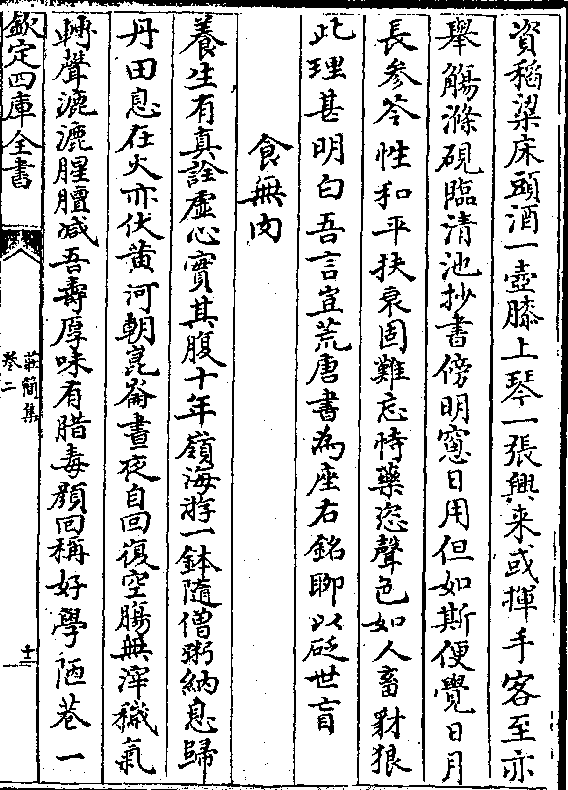 資稻粱床頭酒一壺膝上琴一張興来或揮手客至亦
舉觴滌硯臨清池抄書傍明窻日用但如斯便覺日月
長参苓性和平扶衰固難忘恃藥恣聲色如人畜豺狼
此理甚明白吾言豈荒唐書為座右銘聊以砭世盲
食無肉
養生有真詮虚心實其腹十年嶺海游一鉢隨僧粥納息歸
丹田息在火亦伏黄河朝崑崙晝夜自回復空膓無滓穢氣
轉聲漉漉腥膻減吾壽厚味有腊毒顔回稱好學陋巷一
欽定四庫全書
莊簡集
卷二
十一